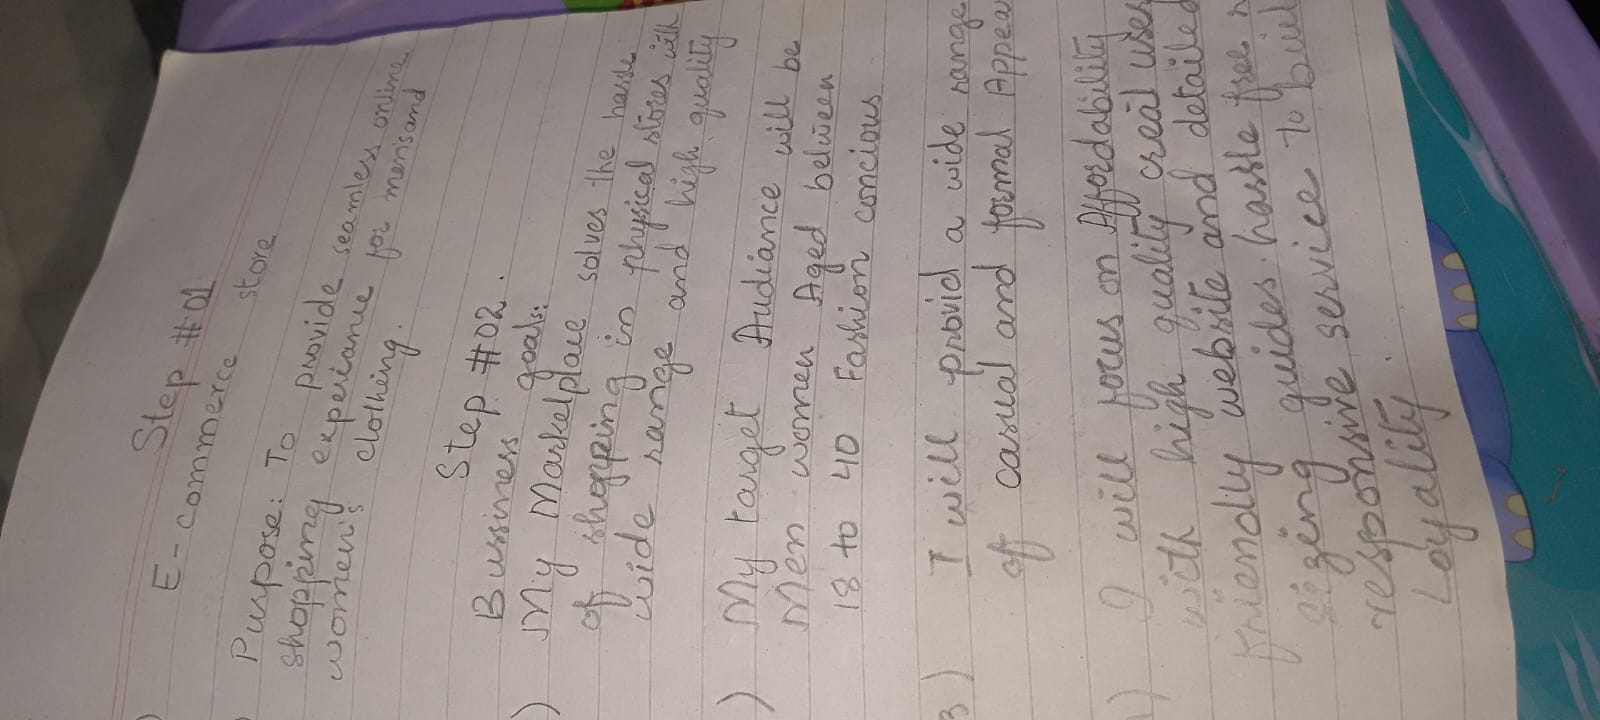 Step #01
E-commerce store
Purpose: To provide seamless online
shopping experiance for mens and
women's clothing.
Step #02.
Bussiness goals:
) My Marketplace solves the hassle
of shopping in physical stores with
wide range and high quality
) My target Audiance will be
Men women Aged between
18 to 40 Fashion concious
3) I will provid a wide range
of casual and formal Appear
) I will focus on Affordability
with high quality creat user
friendly website and detailed
sizing guides. hassle free
responsive service to buil
Loyality.